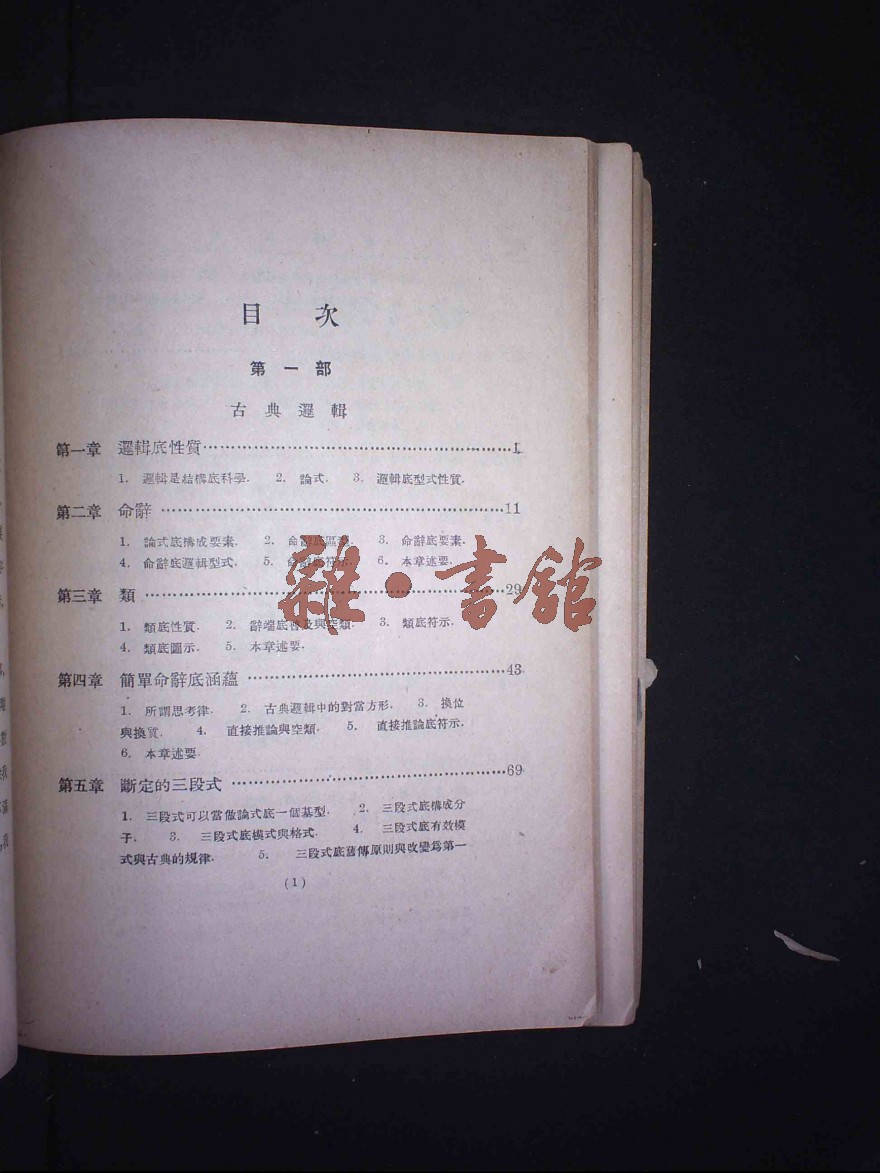 目次
第一部
古典邏輯
第一章 邏輯底性質……1
1. 邏輯是結構底科學. 2. 論式. 3. 邏輯底型式性質.
第二章 命辭……11
1. 論式底構成要素. 2. 命辭底區 3. 命辭底要素.
4. 命辭底邏輯型式. 5. 命辭底符示. 6. 本章述要.
第三章 類……29
1. 類底性質. 2. 辭端底普及與空類. 3. 類底符示.
4. 類底圖示. 5. 本章述要.
第四章 簡單命辭底涵蘊……43
1. 所謂思考律. 2. 古典邏輯中的對當方形. 3. 換位
與換質. 4. 直接推論與空類. 5. 直接推論底符示.
6. 本章述要.
第五章 斷定的三段式……69
1. 三段式可以當做論式底一個基型. 2. 三段式底構成分
子. 3. 三段式底模式與格式. 4. 三段式底有效模
式與古典的規律. 5. 三段式底舊傳原則與改變爲第一
(1)
雜·書館